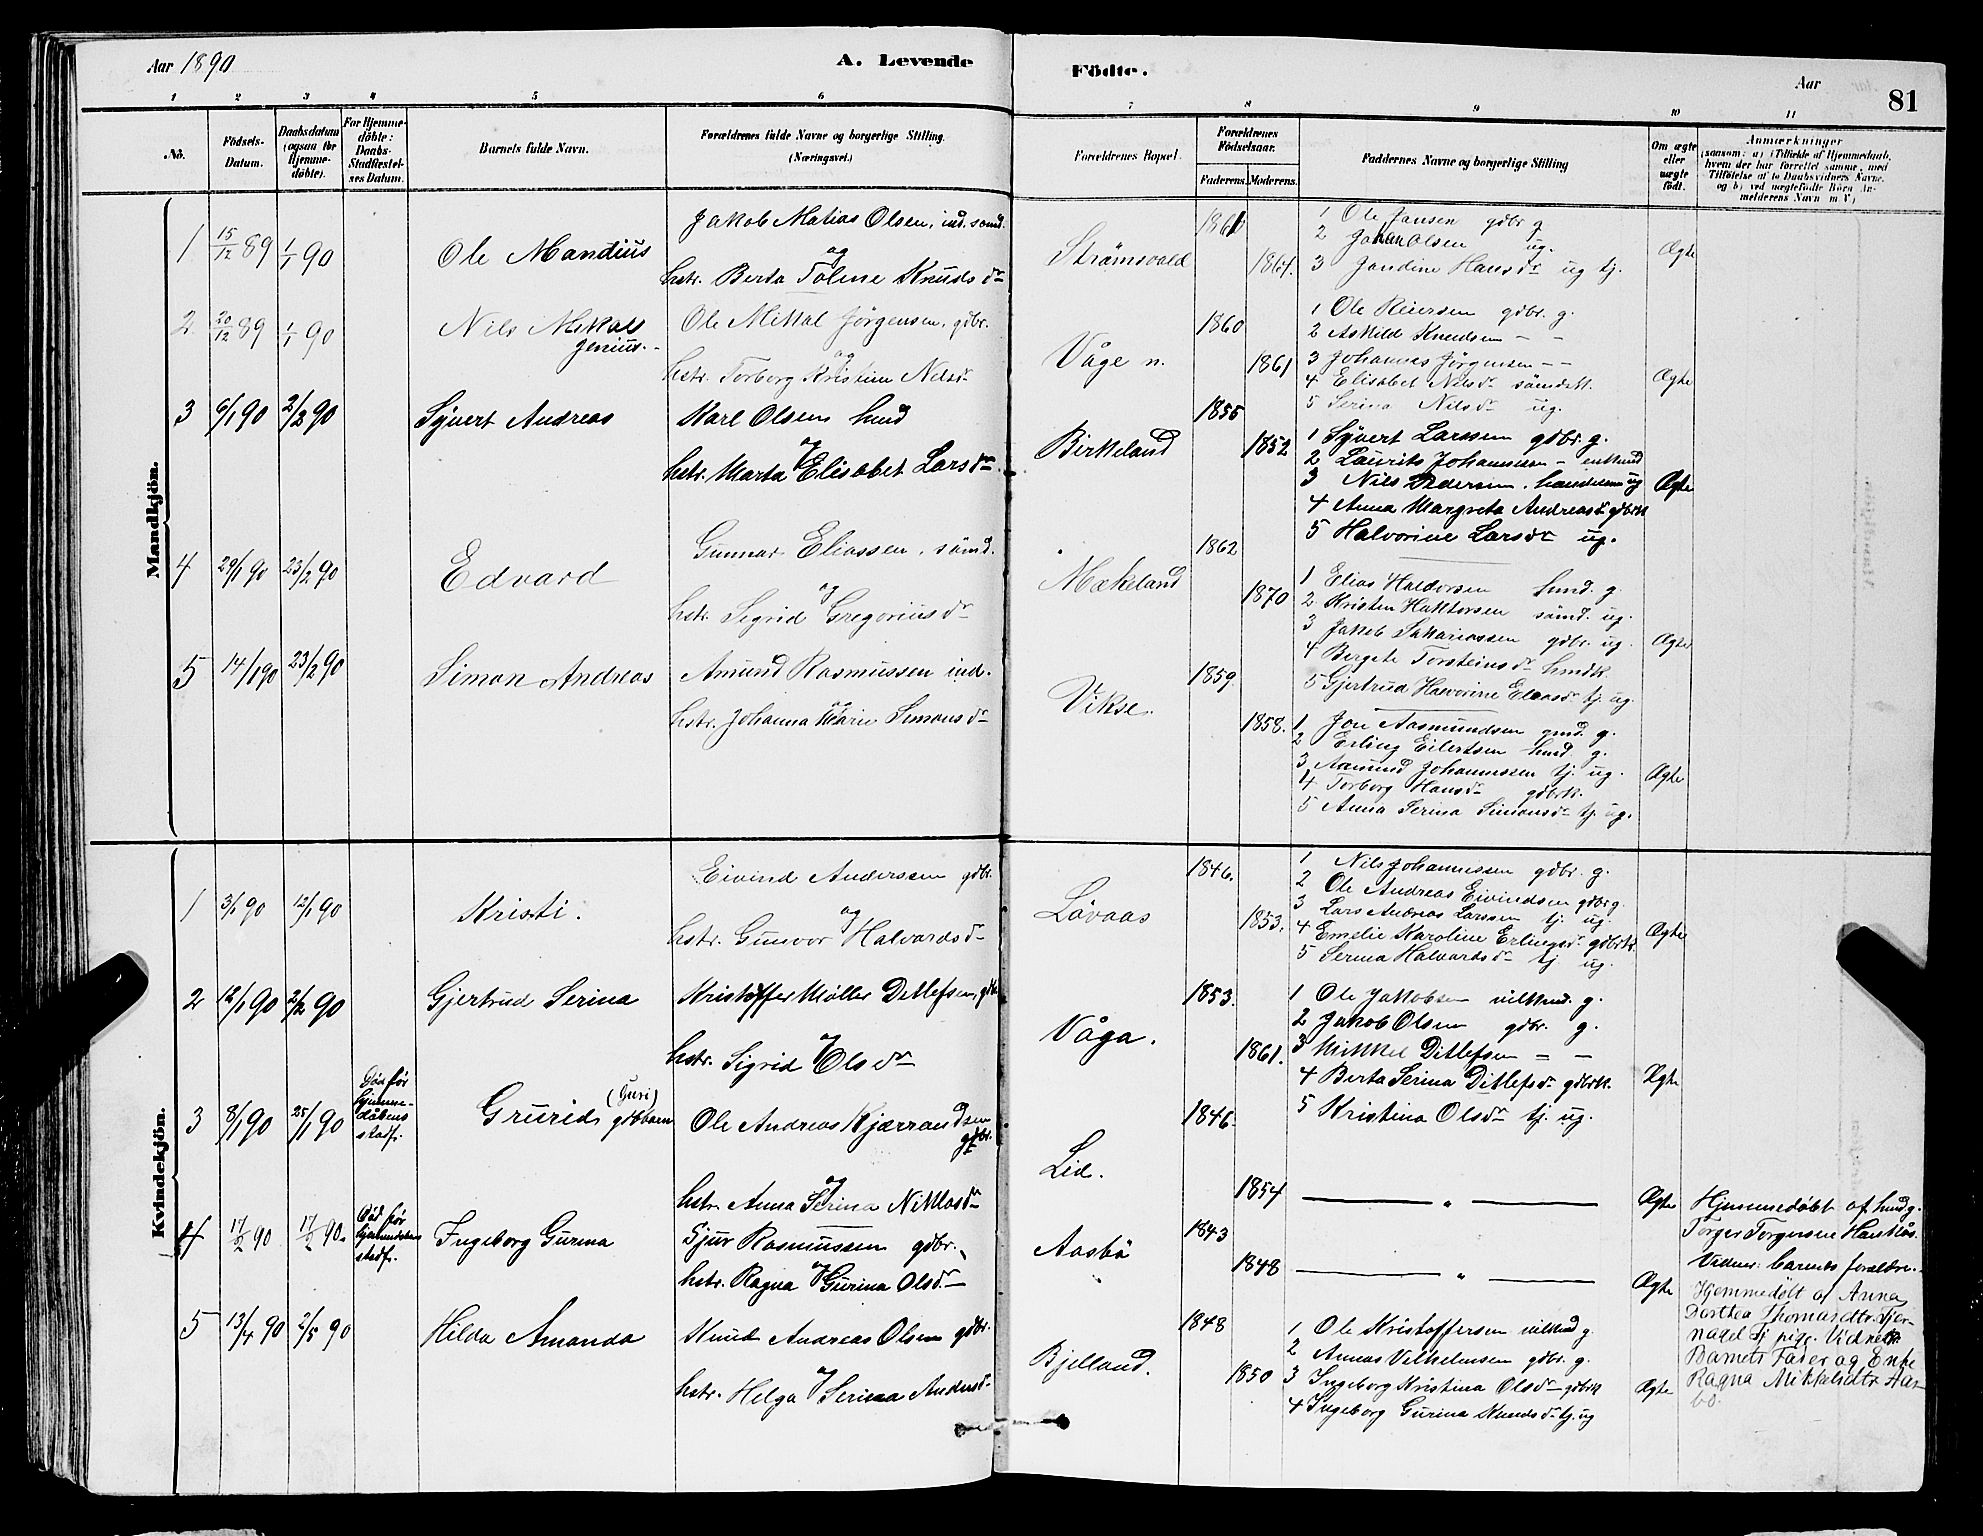 Aar 1890
A. Levende
Födte.
Aar
81
1 2 3 4 5 6 7 8 9 10 11
No.
Födsels-
Datum.
Daabsdatum
(ogsaa for
Hjemme-
döbte).
For Hjemme-
döbte:
Daabs-
Stadfæstel-
ses Datum.
Barnets fulde Navn.
Forældrenes fulde Navne og borgerlige Stilling.
(Næringsvei.)
Forældrenes Bopæl.
Forældrenes
Födselsaar.
Faderens. Moderens.
Faddernes Navne og borgerlige Stilling
Om ægte
eller
uægte
födt.
Anmærkninger
(saasom: a) i Tilfælde af Hjemmedaab,
hvem der har forrettet samme, med
Tilföielse af to Daabsvidners Navne,
og b) ved uægtefödte Börn An-
melderens Navn m. V.)
Mandkjön.
1 15/12 89 1/1 90 Ole Mandius
Jakob Matias Olsen, ind. sömd.
og
hstr. Berta Toline Knudsdr
Strömsvold 1861 1864.
1 Ole Jansen gdbr g
2 Johan Olsen ug.
3 Jandine Hansdr ug tj.
Ægte
2 20/12 89 1/1 90 Nils Mikal
Jenius.
Ole Mikkal Jörgensen, gdbr.
og
hstr. Torborg Kristine Nilsdr
Våge n. 1860 1861
1 Ole Reiersen gdbr. g.
2 Askild Knudsen - -
3 Johannes Jörgensen - -
4 Elisabet Nilsdr sömdatt.
5 Serina Nilsdr ug.
Ægte
3 6/1 90 2/2 90 Syvert Andreas
Karl Olsen hmd
og
hstr. Marta Elisabet Larsdr
Birkeland 1855 1852
1 Syvert Larssen gdbr. g.
2 Laurits Johannssen - enkmd
3 Nils Pedersen, handelsm ug
4 Anna Margreta Andreasdr gdbrk
5 Halvorine Larsdr ug.
Ægte
4 29/1 90 23/2 90 Edvard
Gunnar Eliassen, sömd.
og
hstr. Sigrid Gregoriusdr
Mækeland 1862 1870
1 Elias Haldorsen hmd. g.
2 Kristen Haktorsen sömd. ug.
3 Jakob Sakariassen gdbr. ug.
4 Bergete Torsteinsdr hmdk.
5 Gjertrud Halvorine Eliasdr tj. ug.
Ægte
5 14/1 90 23/2 90 Simon Andreas
Amund Rasmussen ind.
og
hstr. Johanna Marie Simonsdr
Vikse. 1859. 1858.
1 Jon Aasmundsen gmd. g.
2 Erling Eilertsen hmd. g.
3 Aamund Johannssen tj. ug.
4 Torborg Hansdr gdbrk.
5 Anna Serina Simonsdr tj. ug.
Ægte
Kvindekjön.
1 3/1 90 12/1 90 Kristi.
Eivind Anderssen gdbr.
og
hstr. Gunvor Halvardsdr
Lövaas 1846. 1853.
1 Nils Johannessen gdbr. g.
2 Ole Andreas Eivindsen gdbr g.
3 Lars Andreas Larssen tj. ug.
4 Emelie Karoline Erlingsdr gdbrk.
5 Serina Halvardsdr tj. ug.
Ægte
2 12/1 90 2/2 90 Gjertrud Serina
Kristoffer Møller Detlefsen, gdbr
og
hstr. Sigrid Olsdr
Våga. 1853. 1861.
1 Ole Jakobsen vilkmd. g.
2 Jakob Olsen gdbr. g.
3 Mikkel Ditlefsen - -
4 Berta Serina Ditlefsdr gdbrk.
5 Kristina Olsdr tj. ug.
Ægte
3 8/1 90 25/1 90
Död før
hjemme-
dåbens
stadf.
Grurid (Guri) gdbbarn
Ole Andreas Kjærrandsen
gdbr.
og
hstr. Anna Serina Niklasdr
Lid. 1846. 1854
"
Ægte
Hjemmedöbt af hmd g.
Torger Torgersen Hauståe.
Vidner: barnets forældre.
4 17/2 90 17/2 90.
Död før
hjemmedåbens
stadf.
Ingeborg Gurina
Sjur Rasmussen gdbr.
og
hstr. Ragna Gurina Olsdr
Aasbö 1843 1848
"
Ægte
Hjemmedöbt af Anna
Dorthea Thomasdtr Tjer-
nagel tj pige. Vidner:
Barnets Fader og Enke
Ragna Mikkelsdtr Aas-
bö.
5 13/4 90 2/5 90 Hilda Amanda
Knud Andreas Olsen gdbr.
og
hstr. Helga Serina Andersdr
Bjelland. 1848 1850
1 Ole Kristoffersen vilkmd g.
2 Annas Vilhelmsen gdbr. g.
3 Ingeborg Kristina Olsdr gdbrk
4 Ingeborg Gurina Knudsdr tj. ug
Ægte